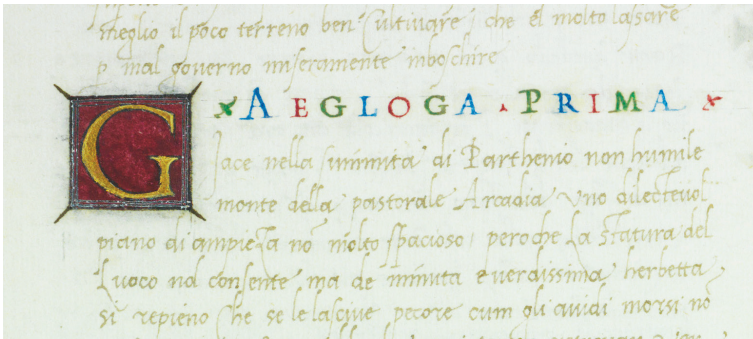 meglio il poco terreno ben Cultiuare, che el molto lassare
p mal governo miseramente inboschire
AEGLOGA . PRIMA
G
Jace nella summita di Parthenio non humile
monte della pastorale Arcadia Uno dilecteuol
piano di ampieza nō molto spacioso, peroche la statura del
Luoco nol consente ma de minuta e verdissima herbetta
si repieno che se le lasciue pecore cum gli auidi morsi nō